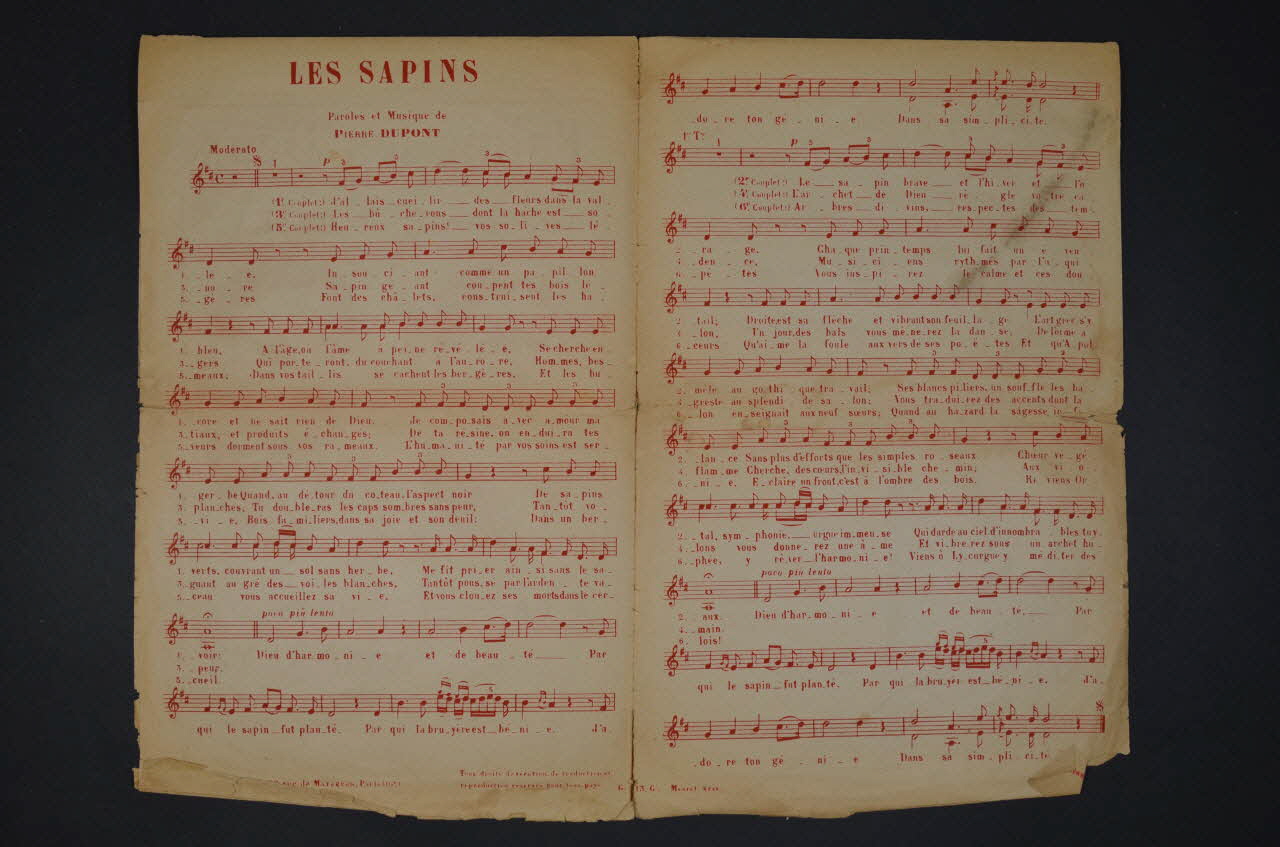 LES SAPINS
Paroles et Musique de
PIERRE DUPONT
Moderato
1
p
3
3
3
3
(1er Couplet:) J'al _ lais_ cueil _ lir __ des _ fleurs dans la val
(3e Couplet:) Les_ bû _ che _ rons _ dont la hache est _ so
(5e Couplet:) Heu _ reux sa _ pins! _ vos so _ li _ ves _ lé
1. _ lé _ e, In _ sou _ ci _ ant comme un pa _ pil _ lon
3. _ no _ re Sa _ pin gé _ ant cou _ pent tes bois lé _
5. _ gè _ res Font des châ _ lets, cons _ trui _ sent les ha _
1. bleu, A l'âge, ou l'âme à pei _ ne ré _ vé _ lé _ e, Se cherche en _
3. _ gers Qui por _ te _ ront, du couchant à l'au _ ro _ re, Hom _ mes, bes _
5. _ meaux; Dans vos tail _ lis se cachent les ber _ gè _ res, Et les bu _
1. _ core et ne sait rien de Dieu. Je com _ po _ sais a _ vec a _ mour ma
3. _ tiaux, et produits é _ chan _ gés; De ta ré _ sine, on en _ dui _ ra tes
5. _ veurs dorment sous vos ra _ meaux. L'hu _ ma _ ni _ té par vos soins est ser _
1. ger _ be Quand, au dé _ tour du co _ teau, l'aspect noir De sa _ pins
3. plan _ ches; Tu dou _ ble _ ras les caps som _ bres sans peur, Tan _ tôt vo _
5. _ vi _ e, Bois fa _ mi _ liers, dans sa joie et son deuil; Dans un ber _
1. verts, couvrant un _ sol sans her _ be, Me fit pri _ er ain _ si sans le sa _
3. _ guant au gré des _ voi _ les blan _ ches, Tantôt pous _ sé par l'arden _ te va _
5. _ ceau vous accueillez sa vi _ e, Et vous clou _ ez ses morts dans le cer _
poco più lento
1. _ voir: Dieu d'har _ mo _ ni _ e et de beau _ té __ Par
3. _ peur.
5. _ cueil.
qui le sapin _ fut plan _ té. Par qui la bru _ yère est _ bé _ ni _ e. J'a _
rue de Mazagran, Paris
Tous droits d'exécution de traduction et
reproduction réservés pour tous pays.
_ do _ re ton gé _ ni _ e Dans sa sim _ pli _ ci _ té.
1o To
1
p
3
3
3
3
(2e Couplet:) Le __ sa _ pin brave __ et l'hi _ ver et l'o _
(4e Couplet:) L'ar _ chet __ de Dieu __ rè _ gle vo _ tre ca _
(6e Couplet:) Ar _ bres __ di _ vins, __ res _ pec _ tés des __ tem _
_ ra _ ge, Cha _ que prin _ temps lui fait un é _ ven _
4. _ den _ ce, Mu _ si _ ci _ ens ryth _ més par l'a _ qui _
6. _ pê _ tes Vous ins _ pi _ rez le calme et ces dou _
2. _ tail; Droite est sa flèche et vibrant son feuil _ la _ ge L'art grec s'y
4. _ lon, Un jour, des bals vous mè _ ne _ rez la dan _ se; De l'orme a _
6. _ ceurs Qu'ai _ me la foule aux vers de ses po _ è _ tes Et qu'A _ pol _
2. mêle au go _ thi _ que tra _ vail; Ses blancs pi _ liers, un souf _ fle les ba _
4. _ greste au splendi _ de sa _ lon; Vous tra _ dui _ rez des accents dont la
6. _ lon en _ seignait aux neuf sœurs; Quand au ha _ zard la sagesse
2. _ lan _ ce Sans plus d'efforts que les simples ro _ seaux. Chœur vé _ gé _
4. flam _ me Cherche, des cœurs, l'in _ vi _ si _ ble che _ min; Aux vi _ o _
6. _ ni _ e. É _ claire un front, c'est à l'ombre des bois. Re _ viens Or _
2. _ tal, sym _ phonie, __ orgue im _ men _ se Qui darde au ciel d'innombra _ bles tuy _
4. _ lons vous donne _ rez une â _ me Et vi _ bre _ rez sous un archet hu _
6. _ phée, y rê _ ver l'harmo _ ni _ e! Viens ô Ly _ curgue y mé _ di _ ter des
poco più lento
2. _ aux. Dieu d'har _ mo _ ni _ e et de beau _ té, __ Par
4. _ main.
6. lois!
qui le sapin _ fut plan _ té. Par qui la bru _ yère est _ bé _ ni _ e. J'a _
_ do _ re ton gé _ ni _ e Dans sa sim _ pli _ ci _ té.
G. 13. G.